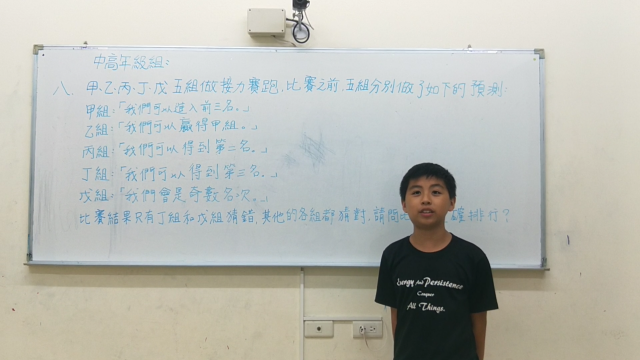 中高年級組:
八、甲、乙、丙、丁、戊五組做接力賽跑,比賽之前,五組分別做了如下的預測:
甲組:「我們可以進入前三名。」
乙組:「我們可以贏得甲組。」
丙組:「我們可以得到第二名。」
丁組:「我們可以得到第三名。」
戊組:「我們會是奇數名次。」
比賽結果只有丁組和戊組猜錯,其他的各組都猜對,請問 排行?
Energy And Persistence
Conquer
All Things.